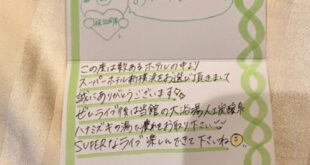 この度は数あるホテルの中より
スーパーホテル新横浜をお選び頂きまして
誠にありがとうございます!!
ぜひライブ後は当館の大浴場人工炭酸泉
ハナミズキの湯で疲れをお取り下さい
SUPERなライブ楽しんできて下さいね